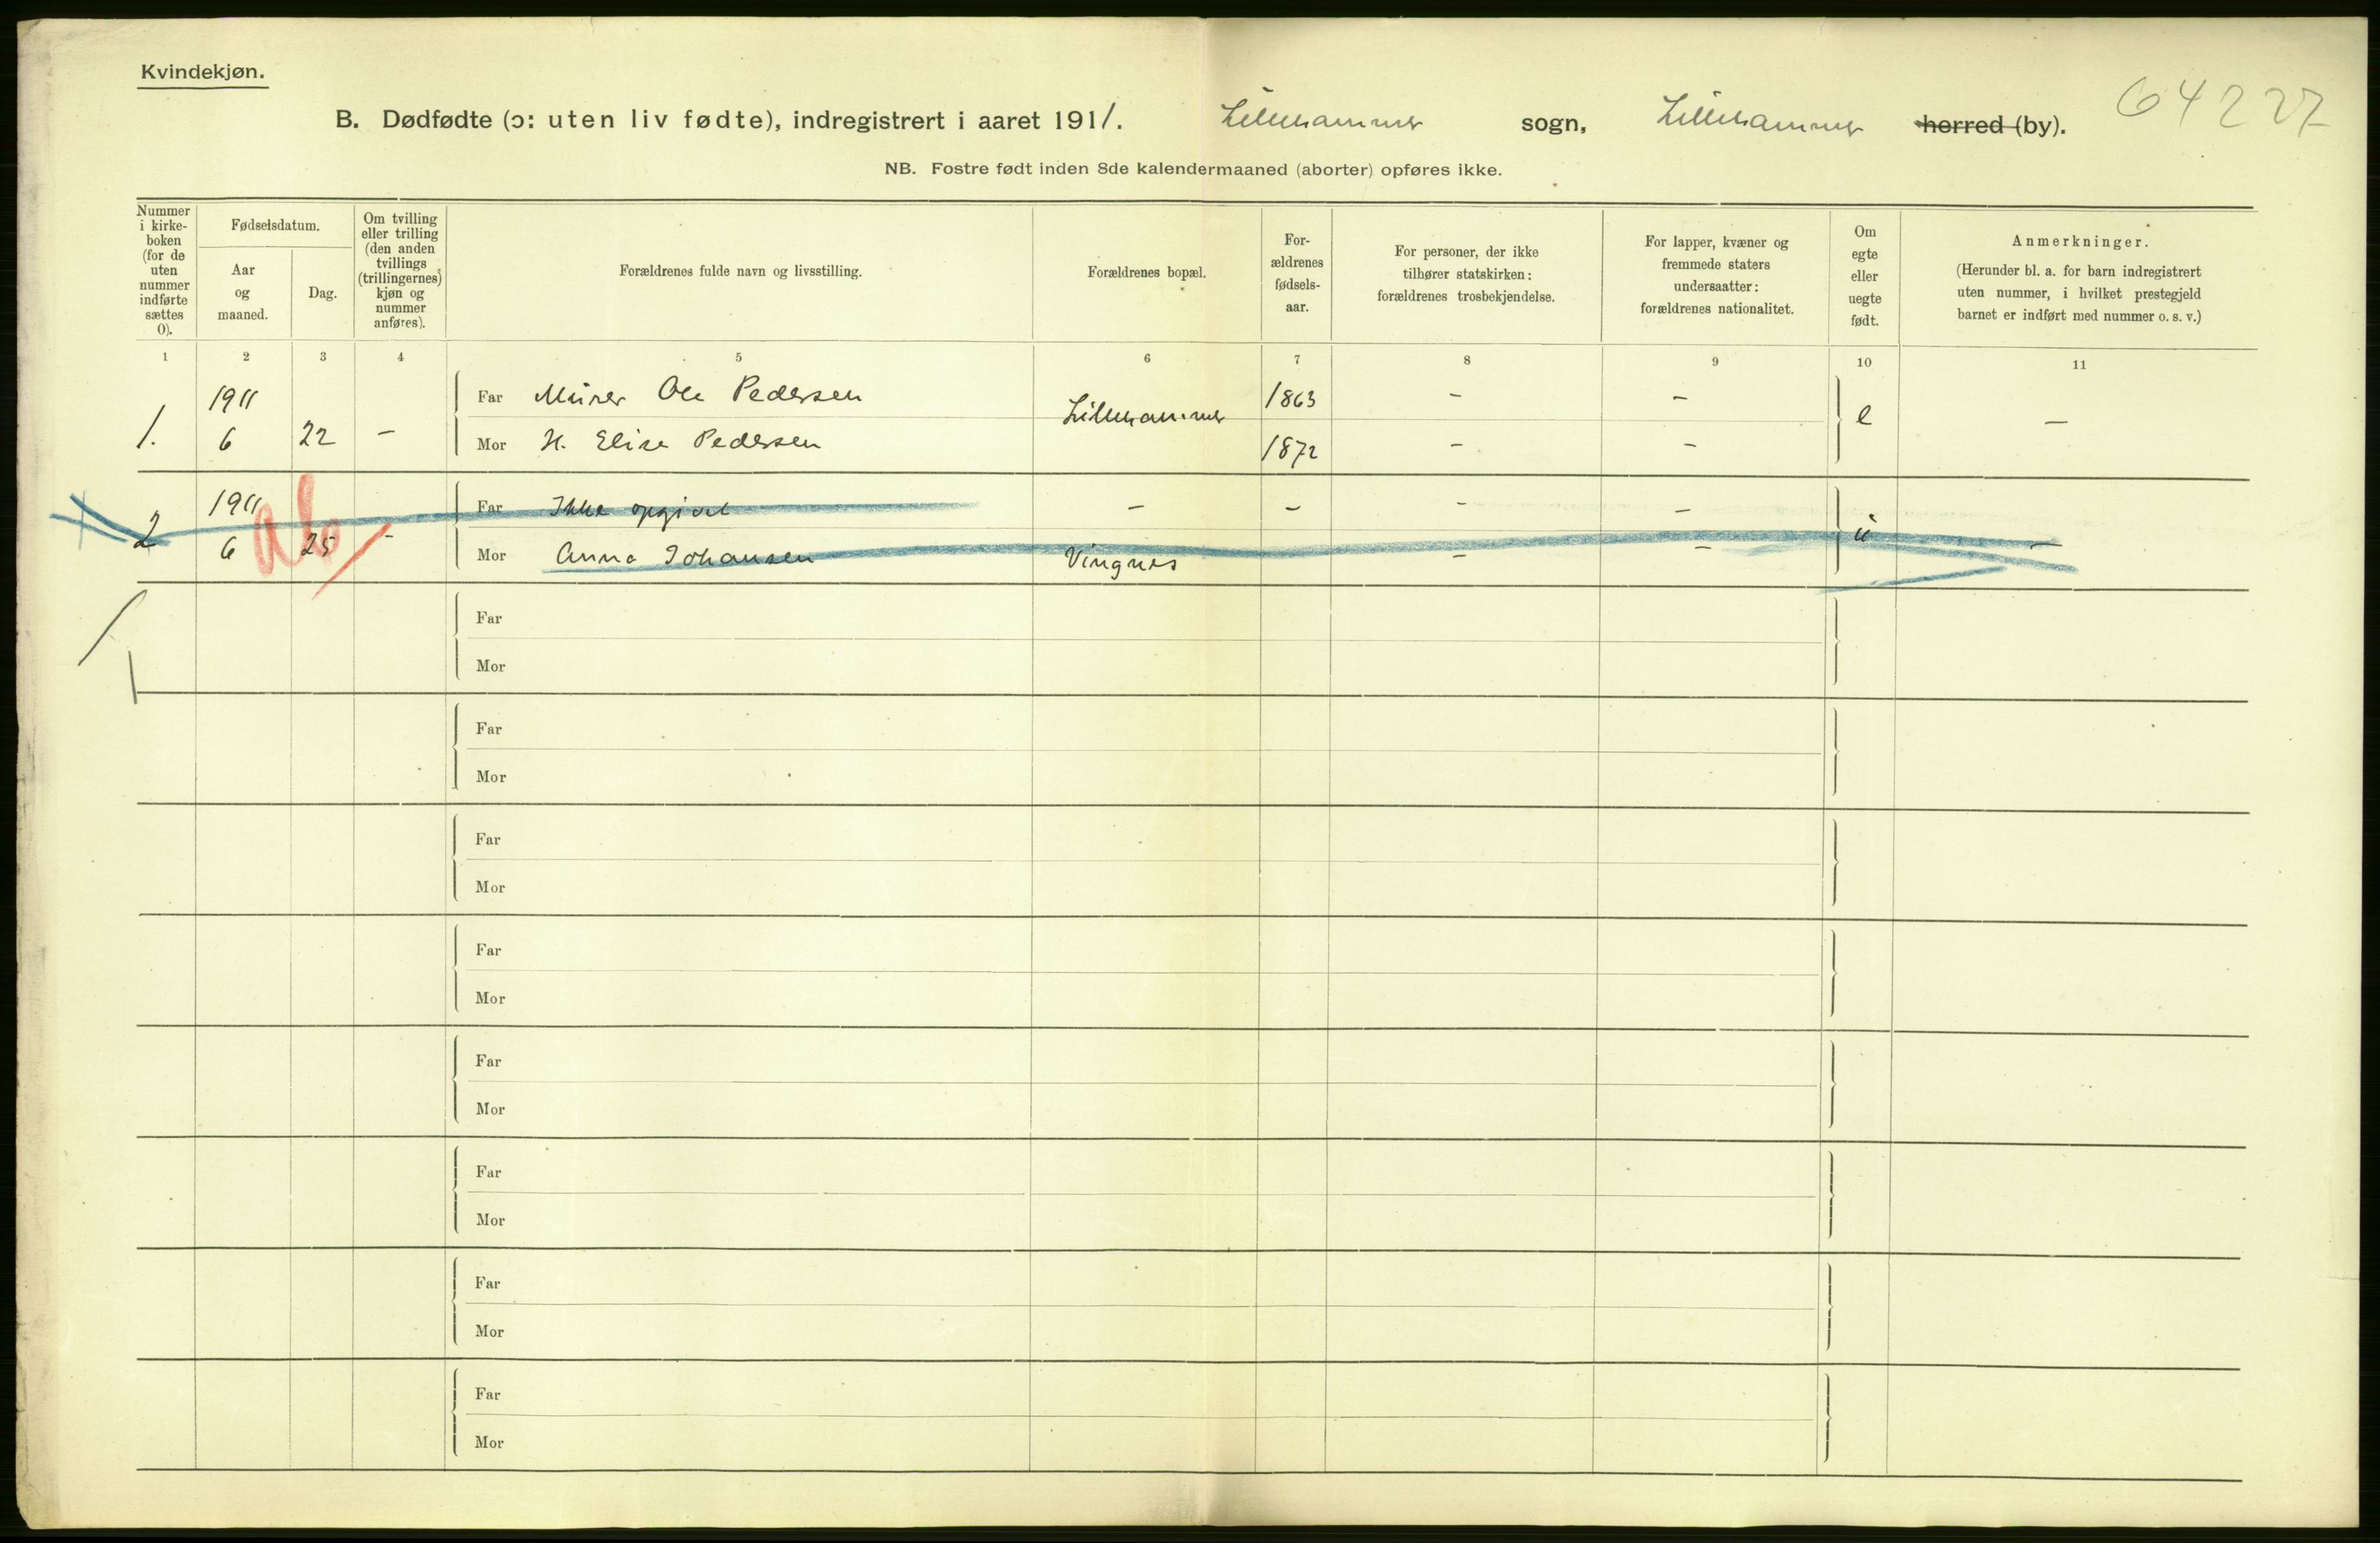 Kvindekjøn.
B. Dødfødte (ɔ: uten liv fødte), indregistrert i aaret 1911. Lillehammer sogn, Lillehammer herred (by). 64227
NB. Fostre født inden 8de kalendermaaned (aborter) opføres ikke.
Nummer
i kirke-
boken
(for de
uten
nummer
indførte
sættes
0).
Fødselsdatum.
Aar
og
maaned.
Dag.
Om tvilling
eller trilling
(den anden
tvillings
(trillingernes)
kjøn og
nummer
anføres).
Forældrenes fulde navn og livsstilling.
Forældrenes bopæl.
For-
ældrenes
fødsels-
aar.
For personer, der ikke
tilhører statskirken:
forældrenes trosbekjendelse.
For lapper, kvæner og
fremmede staters
undersaatter:
forældrenes nationalitet.
Om
egte
eller
uegte
født.
Anmerkninger.
(Herunder bl. a. for barn indregistrert
uten nummer, i hvilket prestegjeld
barnet er indført med nummer o. s. v.)
1 2 3 4 5 6 7 8 9 10 11
1911 Far Murer Ole Pedersen Lillehammer 1863 - - e -
1. 6 22 - Mor H. Elise Pedersen 1872 - -
1911 Far Ikke opgivet - - - - u -
2 6 25 - Mor Anna Johansen Vingnes - -
Far
Mor
Far
Mor
Far
Mor
Far
Mor
Far
Mor
Far
Mor
Far
Mor
Far
Mor